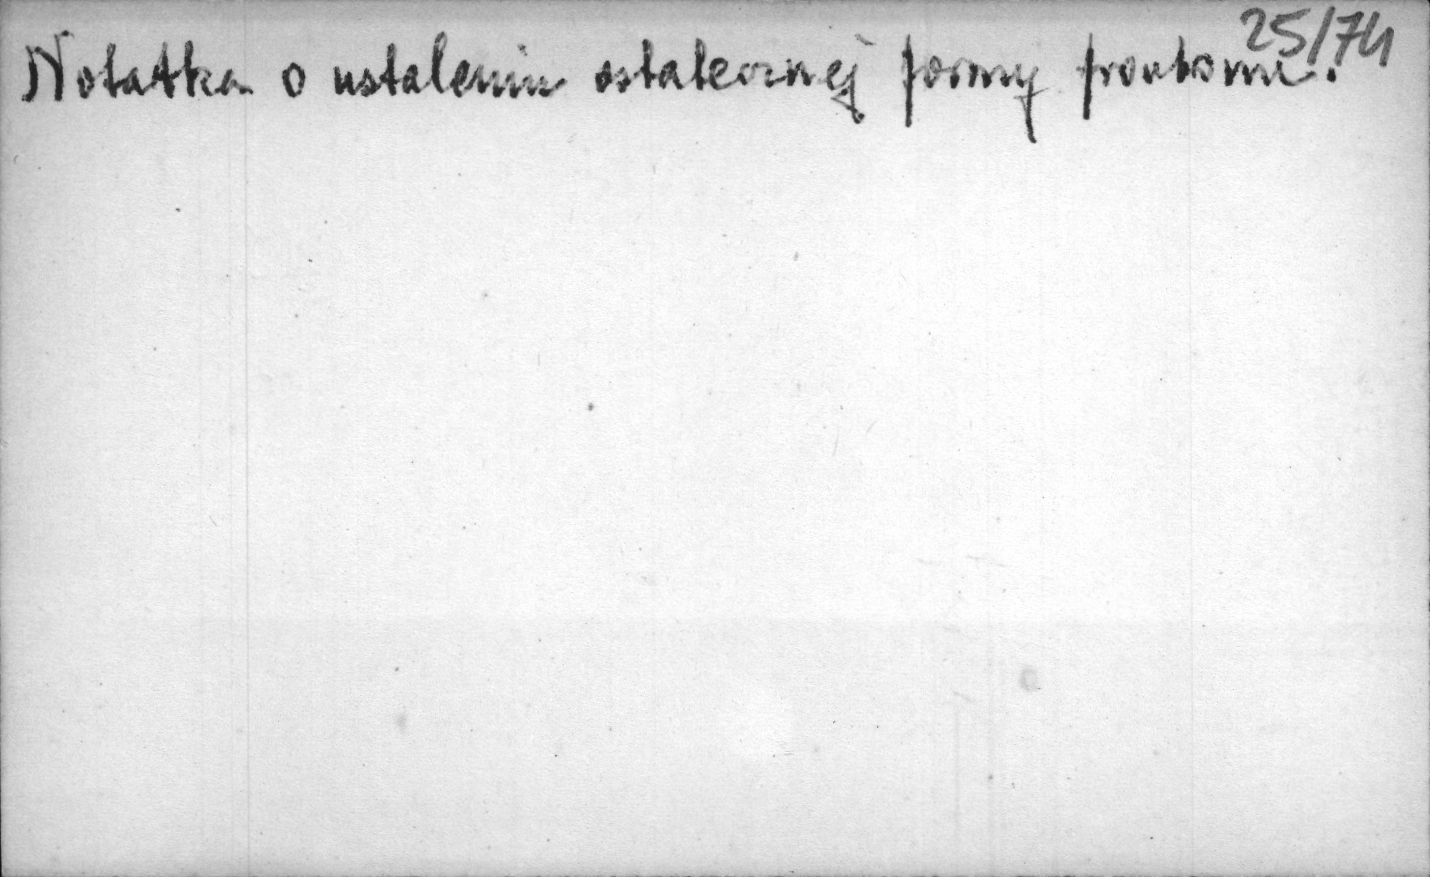 25/74
Notatka o ustaleniu ostatecznej formy frontonu.